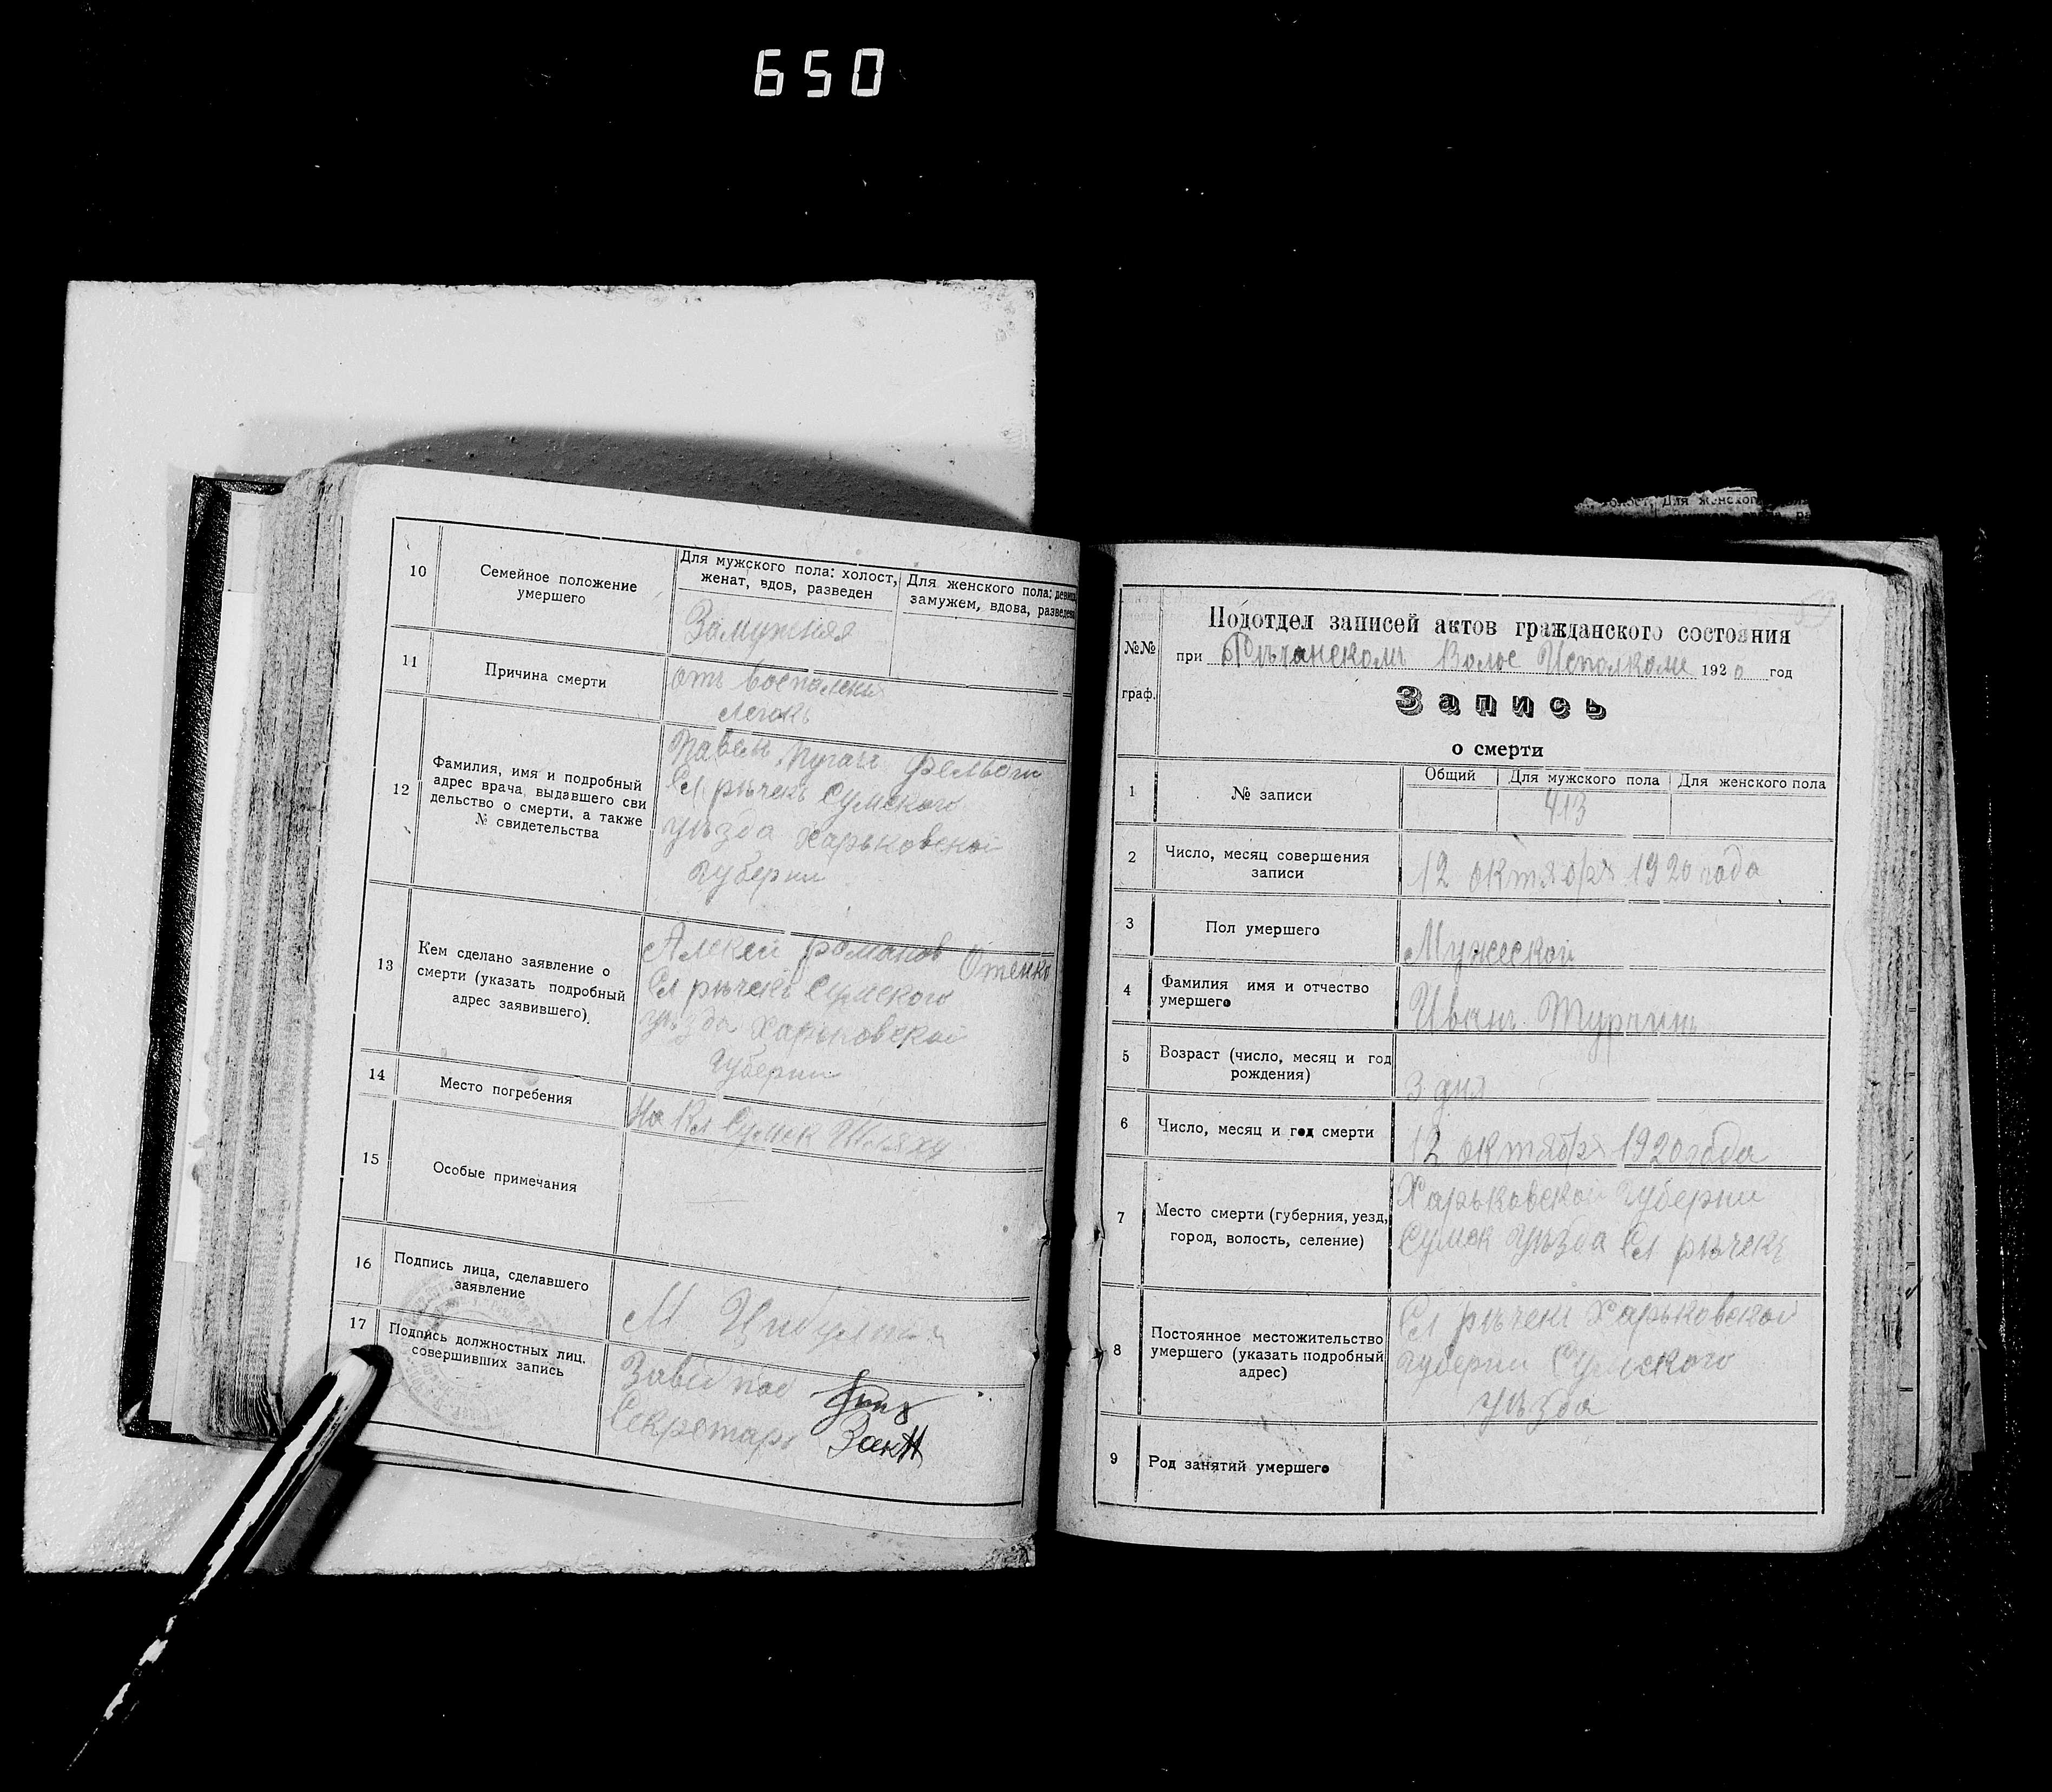 650
10
Семейное положение
умершего
Для мужского пола: холост,
женат, вдов, разведен
Для женского пола: девица
замужем, вдова, разведена
Замужняя
11
Причина смерти
отъ воспаления
легокъ
12
Фамилия, имя и подробный
адрес врача, выдавшего сви
дельство о смерти, а также
№ свидетельства
Павелъ
Сл рѣчекъ Сумского
уѣзда Харьковской
Губерни
13
Кем сделано заявление о
смерти (указать подробный
адрес заявившего).
Алексей романов
Сл рѣчекъ Сумского
уѣзда Харьковской
Губерни
14
Место погребения
На Кл Сумск Шляху
15
Особые примечания
16
Подпись лица, сделавшего
заявление
М Цибулник
17
Подпись должностных лиц,
совершивших запись
Секретарь
№№
граф.
Подотдел записей актов гражданского состояния
при Рѣчанскомъ Волос Исполкоме 1920 год
Запись
о смерти
1
№ записи
Общий
Для мужского пола
Для женского пола
413
2
Число, месяц совершения
записи
12 октября 1920 года
3
Пол умершего
Мужеской
4
Фамилия имя и отчество
умершего
Иванъ Турчинъ
5
Возраст (число, месяц и год
рождения)
3 дня
6
Число, месяц и год смерти
12 октября 1920 года
7
Место смерти (губерния, уезд,
город, волость, селение)
Харьковской Губерни
Сумск уѣзда Сл рѣчекъ
8
Постоянное местожительство
умершего (указать подробный
адрес)
Сл рѣчекъ Харьковской
Губерни Сумского
уѣзда
9
Род занятий умершего